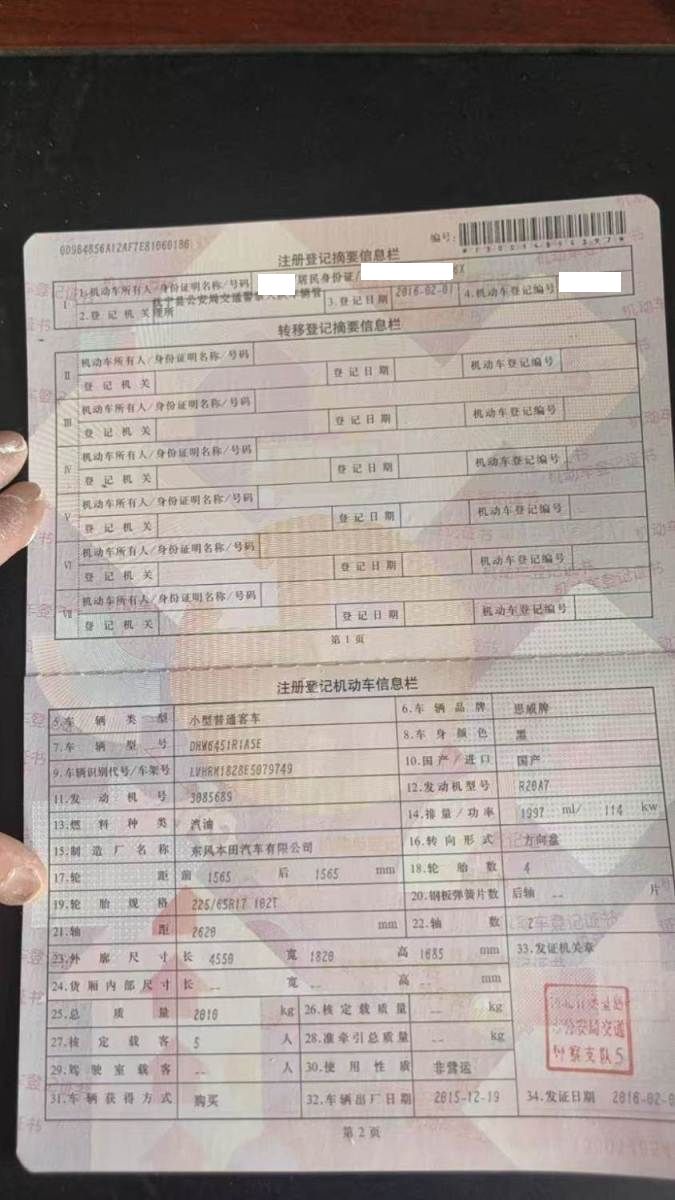 0D9B4856A12AF7E81060186
编号:
注册登记摘要信息栏
I 1.机动车所有人/身份证明名称/号码 /居民身份证/ 8X
2.登记机关 县公安局交通警察大队车辆管理所 3.登记日期 2016-02-01 4.机动车登记编号
转移登记摘要信息栏
II 机动车所有人/身份证明名称/号码
登记机关 登记日期 机动车登记编号
III 机动车所有人/身份证明名称/号码
登记机关 登记日期 机动车登记编号
IV 机动车所有人/身份证明名称/号码
登记机关 登记日期 机动车登记编号
V 机动车所有人/身份证明名称/号码
登记机关 登记日期 机动车登记编号
VI 机动车所有人/身份证明名称/号码
登记机关 登记日期 机动车登记编号
VII 机动车所有人/身份证明名称/号码
登记机关 登记日期 机动车登记编号
第1页
注册登记机动车信息栏
5.车辆类型 小型普通客车 6.车辆品牌 思威牌
7.车辆型号 DHW6451R1ASE 8.车身颜色 黑
9.车辆识别代号/车架号 LVHRM1828E5079749 10.国产/进口 国产
11.发动机号 3085689 12.发动机型号 R20A7
13.燃料种类 汽油 14.排量/功率 1997 ml/ 114 kw
15.制造厂名称 东风本田汽车有限公司 16.转向形式 方向盘
17.轮距 前 1565 后 1565 mm 18.轮胎数 4
19.轮胎规格 225/65R17 102T 20.钢板弹簧片数 后轴 -- 片
21.轴距 2620 mm 22.轴数 2
23.外廓尺寸 长 4550 宽 1820 高 1685 mm 33.发证机关章
24.货厢内部尺寸 长 -- 宽 -- 高 -- mm
25.总质量 2010 kg 26.核定载质量 -- kg
27.核定载客 5 人 28.准牵引总质量 -- kg
公安局交通
警察支队
29.驾驶室载客 -- 人 30.使用性质 非营运
31.车辆获得方式 购买 32.车辆出厂日期 2015-12-19 34.发证日期 2016-02-0
第2页